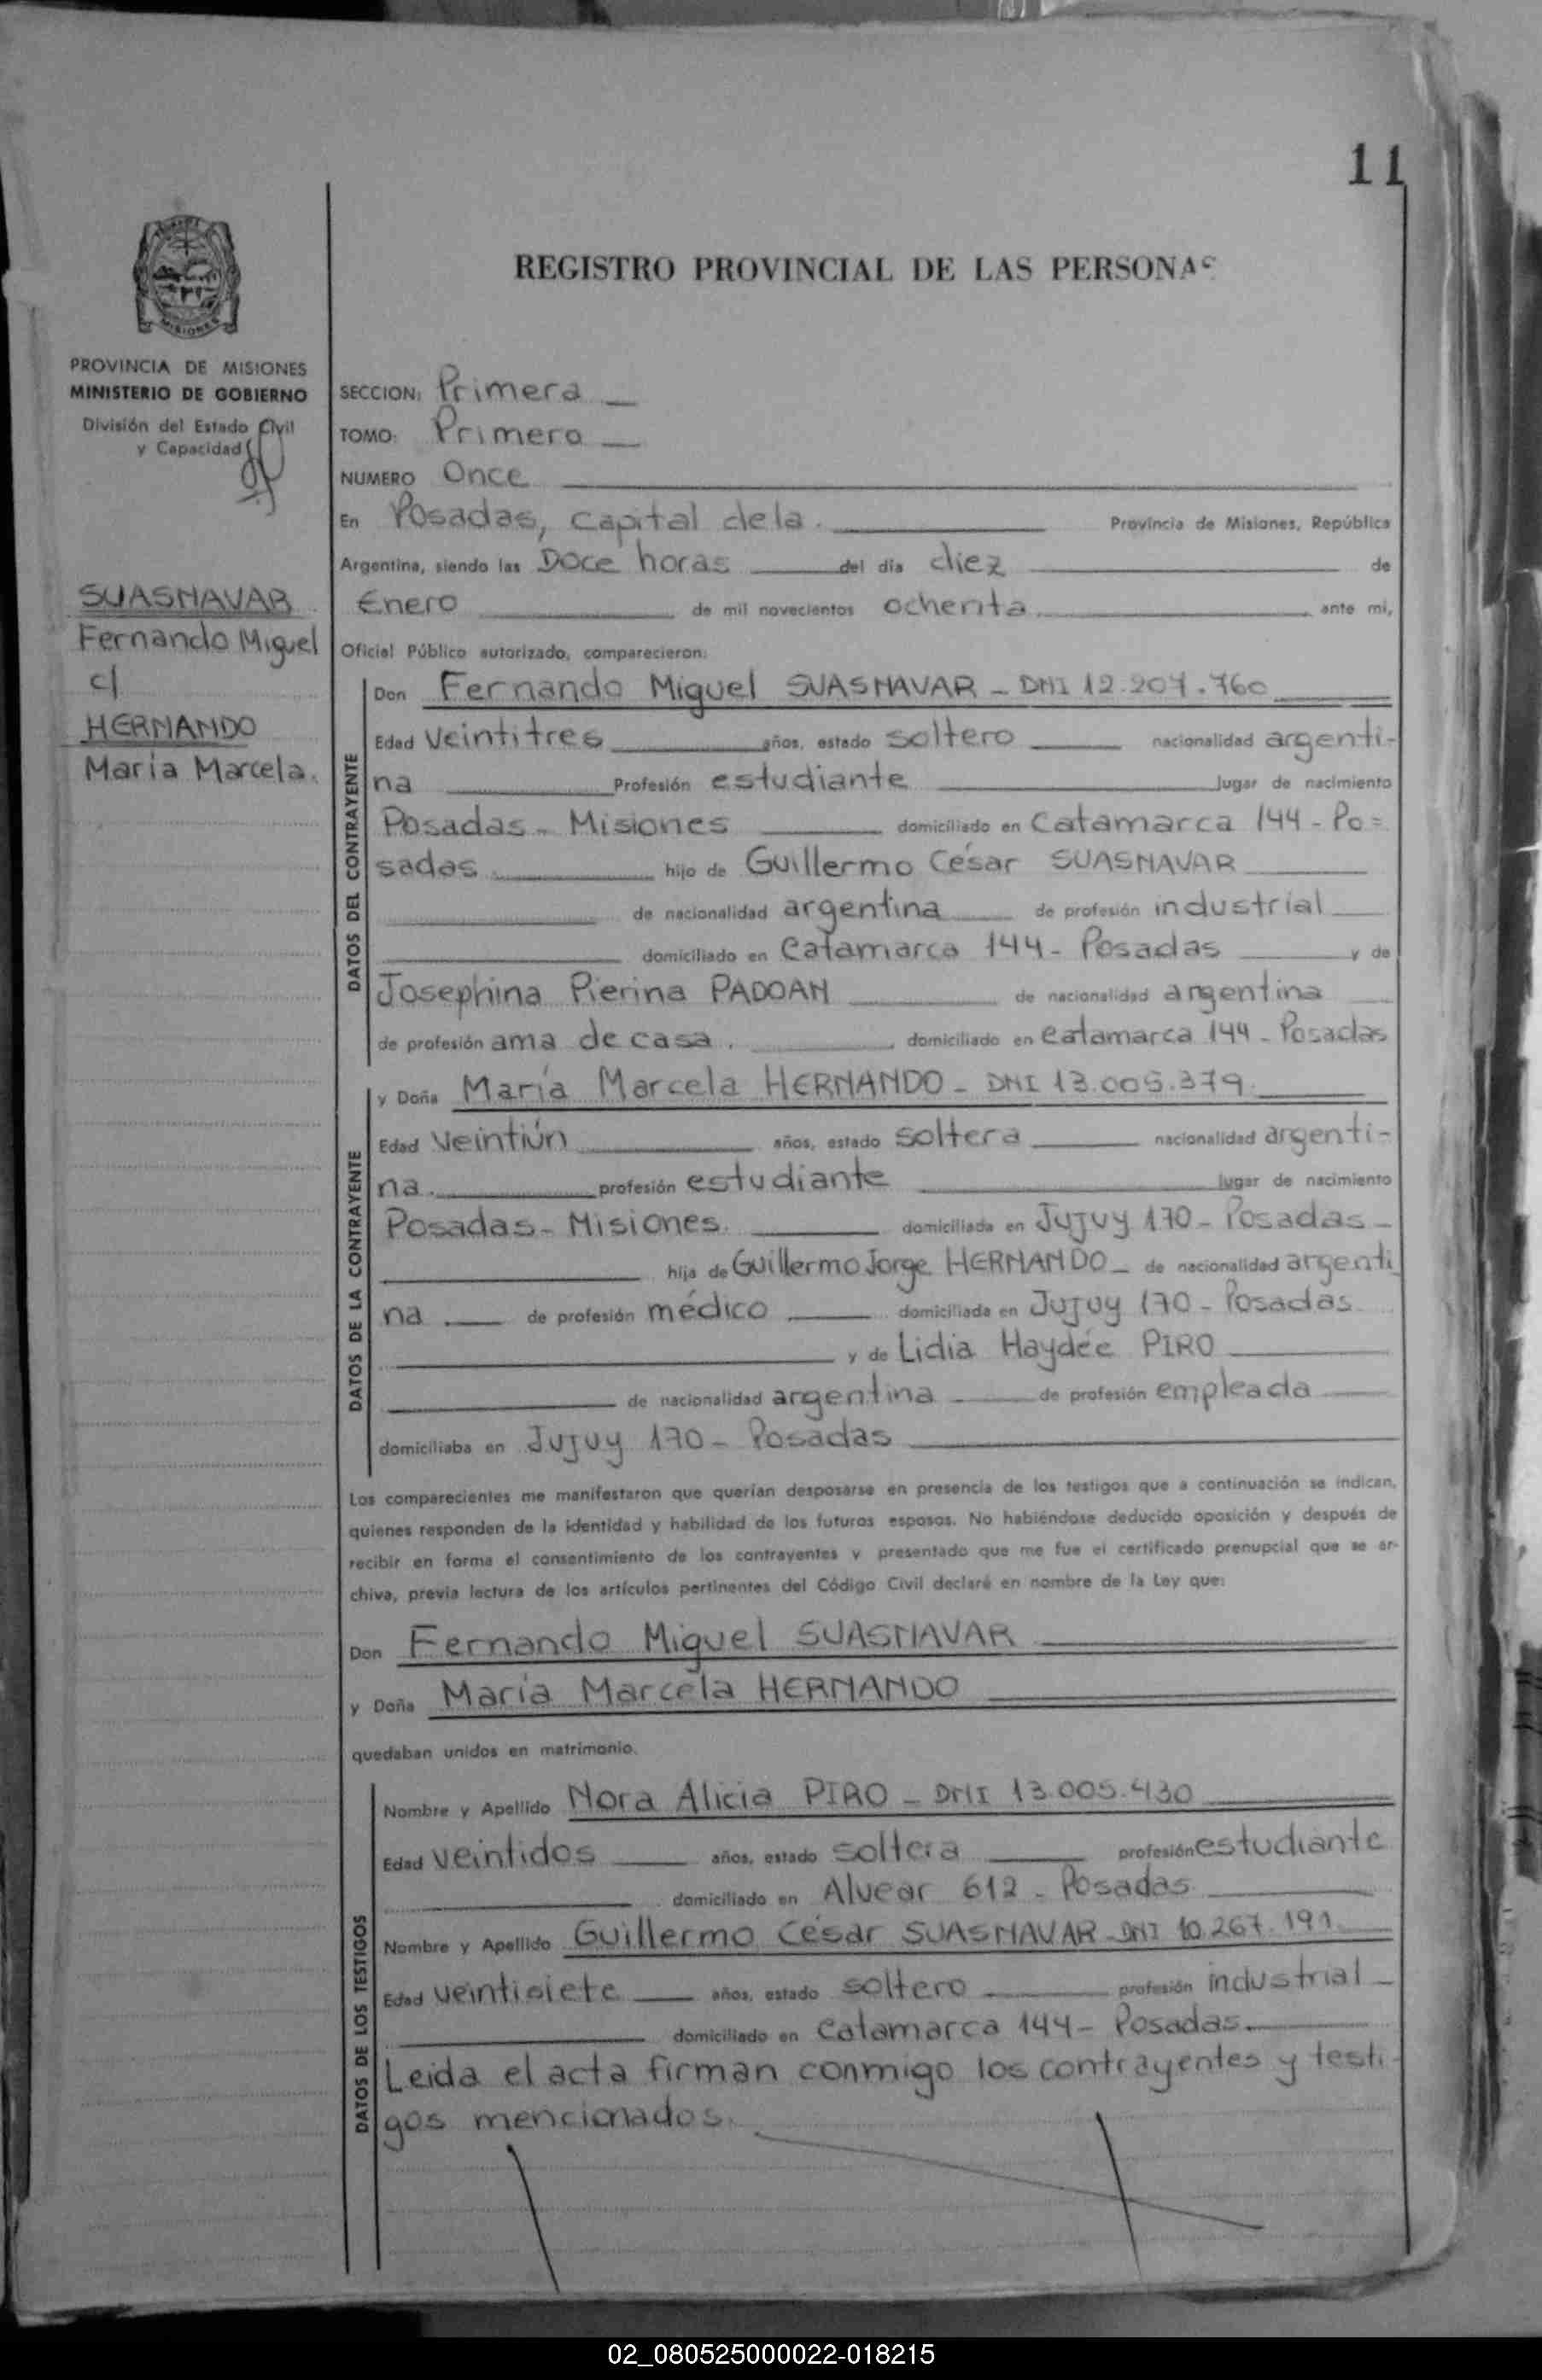 11
REGISTRO PROVINCIAL DE LAS PERSONAS
MISIONES
PROVINCIA DE MISIONES
MINISTERIO DE GOBIERNO
División del Estado Civil
y Capacidad
SUASNAVAR
Fernando Miguel
c/
HERNANDO
María Marcela.
SECCION: Primera
TOMO: Primero
NUMERO Once
En Posadas, Capital de la. Provincia de Misiones, República
Argentina, siendo las Doce horas del día diez de
Enero de mil novecientos ochenta. ante mi,
Oficial Público autorizado, comparecieron:
DATOS DEL CONTRAYENTE
Don Fernando Miguel SUASNAVAR - DNI 12.207.760
Edad Veintitres años, estado soltero nacionalidad argenti-
na Profesión estudiante lugar de nacimiento
Posadas - Misiones domiciliado en Catamarca 144 - Po=
sadas hijo de Guillermo César SUASNAVAR
de nacionalidad argentina de profesión industrial
domiciliado en Catamarca 144 - Posadas y de
Josephina Pierina PADOAN de nacionalidad argentina
de profesión ama de casa. domiciliado en Catamarca 144 - Posadas
DATOS DE LA CONTRAYENTE
y Doña María Marcela HERNANDO - DNI 13.005.379.
Edad Veintiún años, estado soltera nacionalidad argenti-
na. profesión estudiante lugar de nacimiento
Posadas - Misiones. domiciliada en Jujuy 170 - Posadas -
hija de Guillermo Jorge HERNANDO - de nacionalidad argenti
na de profesión médico domiciliada en Jujuy 170 - Posadas
y de Lidia Haydée PIRO
de nacionalidad argentina de profesión empleada
domiciliaba en Jujuy 170 - Posadas
Los comparecientes me manifestaron que querían desposarse en presencia de los testigos que a continuación se indican,
quienes responden de la identidad y habilidad de los futuros esposos. No habiéndose deducido oposición y después de
recibir en forma el consentimiento de los contrayentes y presentado que me fue el certificado prenupcial que se ar-
chiva, previa lectura de los artículos pertinentes del Código Civil declaré en nombre de la Ley que:
Don Fernando Miguel SUASNAVAR
y Doña María Marcela HERNANDO
quedaban unidos en matrimonio.
DATOS DE LOS TESTIGOS
Nombre y Apellido Nora Alicia PIRO - DNI 13.005.430
Edad veintidos años, estado soltera profesión estudiante
domiciliado en Alvear 612 - Posadas
Nombre y Apellido Guillermo César SUASNAVAR - DNI 10.267.191
Edad veintisiete años, estado soltero profesión industrial
domiciliado en Catamarca 144 - Posadas.
Leída el acta firman conmigo los contrayentes y testi-
gos mencionados.
02_080525000022-018215